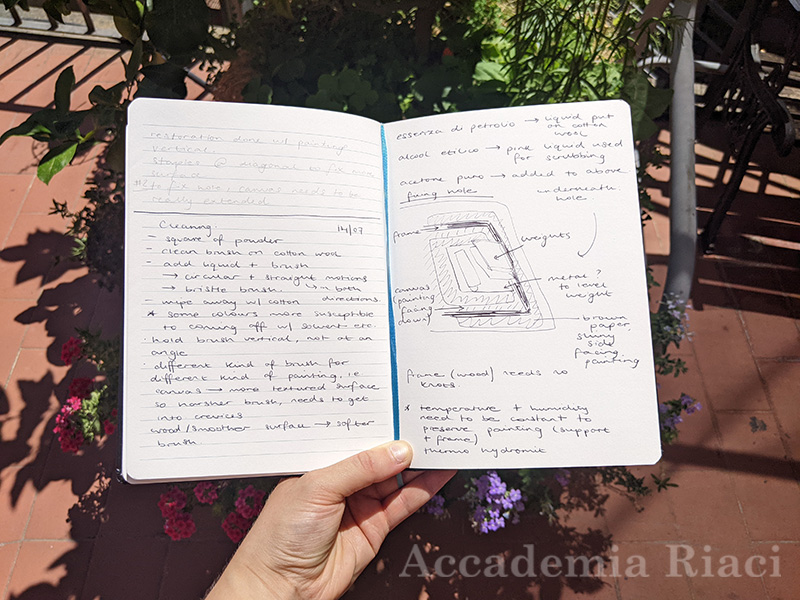 restoration done w/ painting
vertical.
staples @ diagonal to fix more
surface
to fix hole, canvas needs to be
really extended
Cleaning. 14/07
- square of powder
- clean brush on cotton wool
- add liquid + brush
→ circular + straight motions
→ bristle brush. ↳ in both
- wipe away w/ cotton directions.
* some colours more susceptible
to coming off w/ solvent etc.
· hold brush vertical, not at an
angle
· different kind of brush for
different kind of painting, i.e
canvas → more textured surface
so harsher brush, needs to get
into crevices
wood/smoother surface → softer
brush.
essenza di petrolio → liquid put
on cotton
wool
alcool etilico → pink liquid used
for scrubbing
acetone puro → added to above
fixing hole
underneath.
hole
frame
weights
canvas
(painting
facing
down)
metal?
to level
weight
brown
paper,
shiny
side
facing
painting
frame (wood) needs no
knots.
* temperature + humidity
need to be constant to
preserve painting (support
+ frame)
thermo hydromit
Accademia Riaci